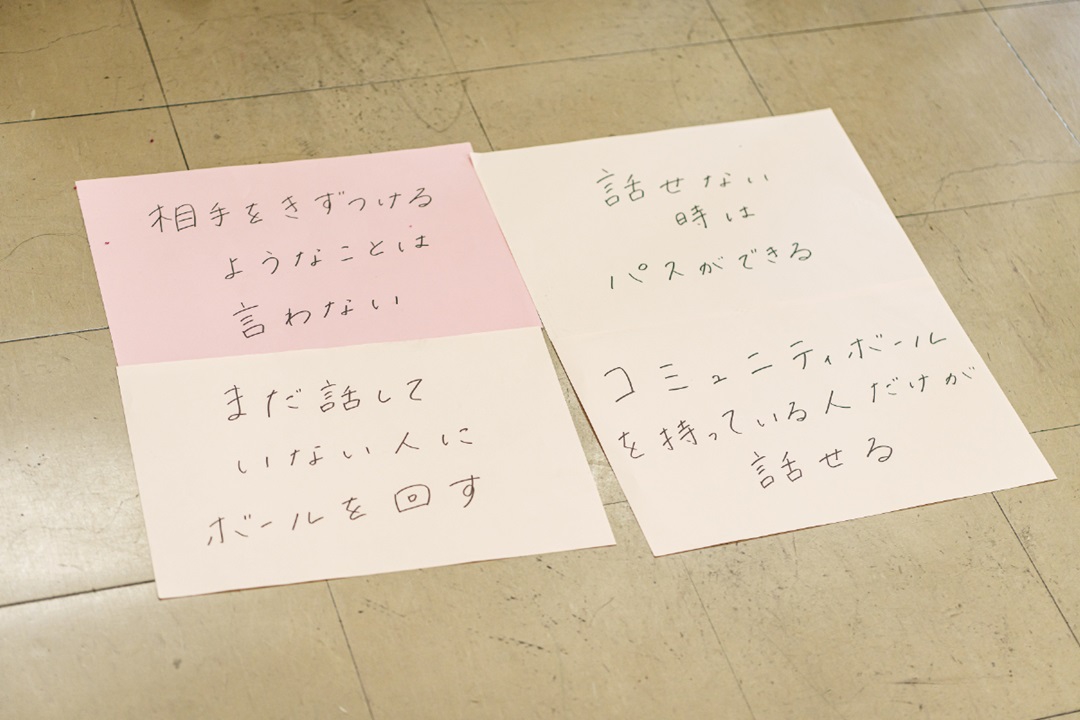 相手をきずつける
ようなことは
言わない
まだ話して
いない人に
ボールを回す
話せない
時は
パスができる
コミュニティボール
を持っている人だけが
話せる